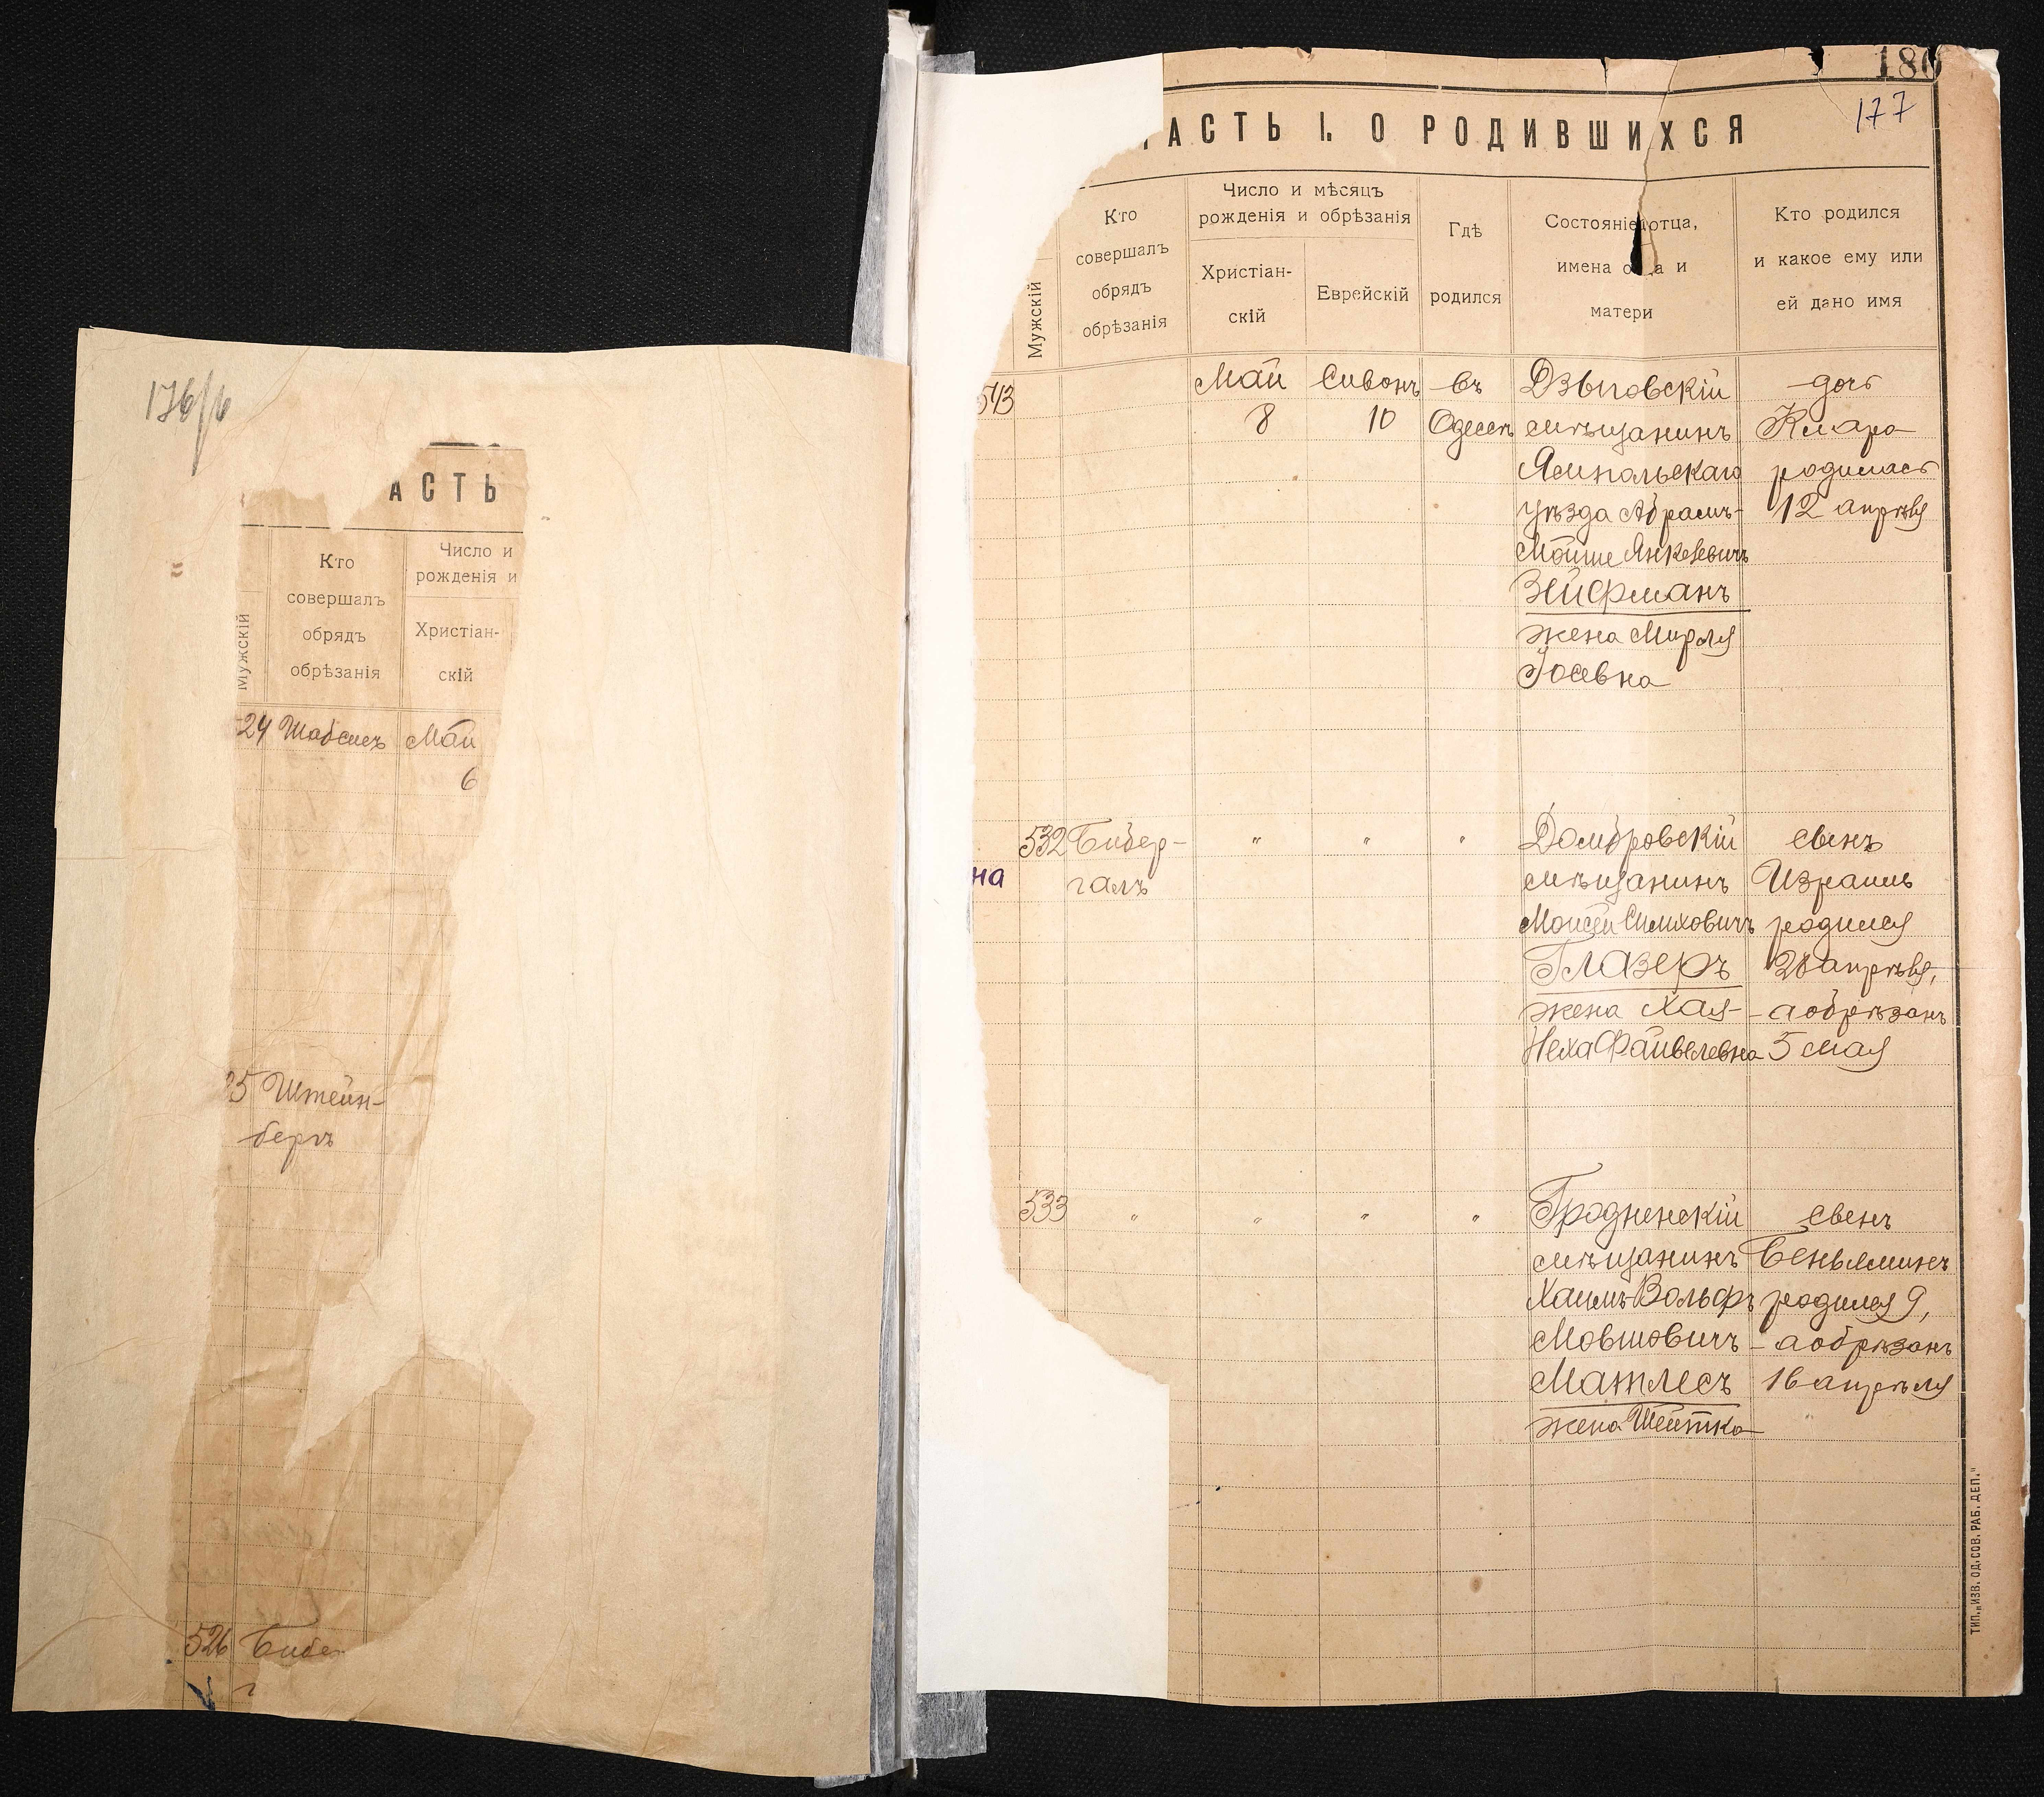 176/6
АСТЬ
Мужскій
Кто
совершалъ
обрядъ
обрѣзанія
Число и
рожденія и
Христіан-
скій
24 Шабсисъ Май
6
25 Штейн-
бергъ
526 Бибе
г
180
177
АСТЬ I. О РОДИВШИХСЯ
Мужскій
Кто
совершалъ
обрядъ
обрѣзанія
Число и мѣсяцъ
рожденія и обрѣзанія
Христіан-
скій
Еврейскій
Гдѣ
родился
Состояніе отца,
имена о ца и
матери
Кто родился
и какое ему или
ей дано имя
543 Май Сивонъ въ Дзыговскій дочь
8 10 Одессѣ мѣщанинъ Клара
Ямпольскаго родилась
уѣзда Абрамъ- 12 апрѣля
Мойше Янкелевичъ
Зейфманъ
жена Мирля
Іосевна
532 Бибер- " " " Домбровскій сынъ
на галъ мѣщанинъ Израиль
Моисей Симховичъ родился
Глазеръ 28 апрѣля,
жена Хая- а обрѣзанъ
Неха Файвелевна 5 мая
533 " " " " Гродненскій сынъ
мѣщанинъ Беньяминъ
Хаимъ-Вольфъ родился 9,
Мовшовичъ а обрѣзанъ
Матлесъ 16 апрѣля
жена Шейтка
ТИП. „ИЗВ. ОД. СОВ. РАБ. ДЕП."